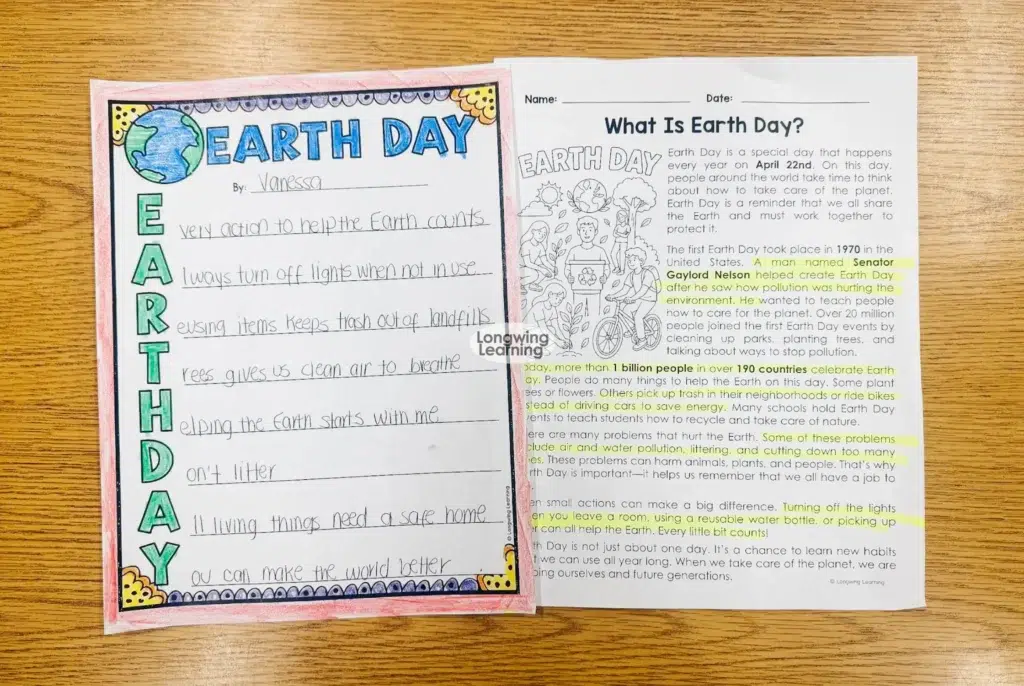 EARTH DAY
By: Vanessa
Every action to help the Earth counts
Always turn off lights when not in use
Reusing items keeps trash out of landfills
Trees gives us clean air to breathe
Helping the Earth starts with me
Don't litter
All living things need a safe home
You can make the world better.
© Longwing Learning
Longwing
Learning
Name: Date:
What Is Earth Day?
EARTH DAY
Earth Day is a special day that happens
every year on April 22nd. On this day,
people around the world take time to think
about how to take care of the planet.
Earth Day is a reminder that we all share
the Earth and must work together to
protect it.
The first Earth Day took place in 1970 in the
United States. A man named Senator
Gaylord Nelson helped create Earth Day
after he saw how pollution was hurting the
environment. He wanted to teach people
how to care for the planet. Over 20 million
people joined the first Earth Day events by
cleaning up parks, planting trees, and
talking about ways to stop pollution.
day, more than 1 billion people in over 190 countries celebrate Earth
ay. People do many things to help the Earth on this day. Some plant
ees or flowers. Others pick up trash in their neighborhoods or ride bikes
stead of driving cars to save energy. Many schools hold Earth Day
ents to teach students how to recycle and take care of nature.
ere are many problems that hurt the Earth. Some of these problems
clude air and water pollution, littering, and cutting down too many
es. These problems can harm animals, plants, and people. That's why
rth Day is important—it helps us remember that we all have a job to
en small actions can make a big difference. Turning off the lights
en you leave a room, using a reusable water bottle, or picking up
er can all help the Earth. Every little bit counts!
th Day is not just about one day. It's a chance to learn new habits
t we can use all year long. When we take care of the planet, we are
ping ourselves and future generations.
© Longwing Learning